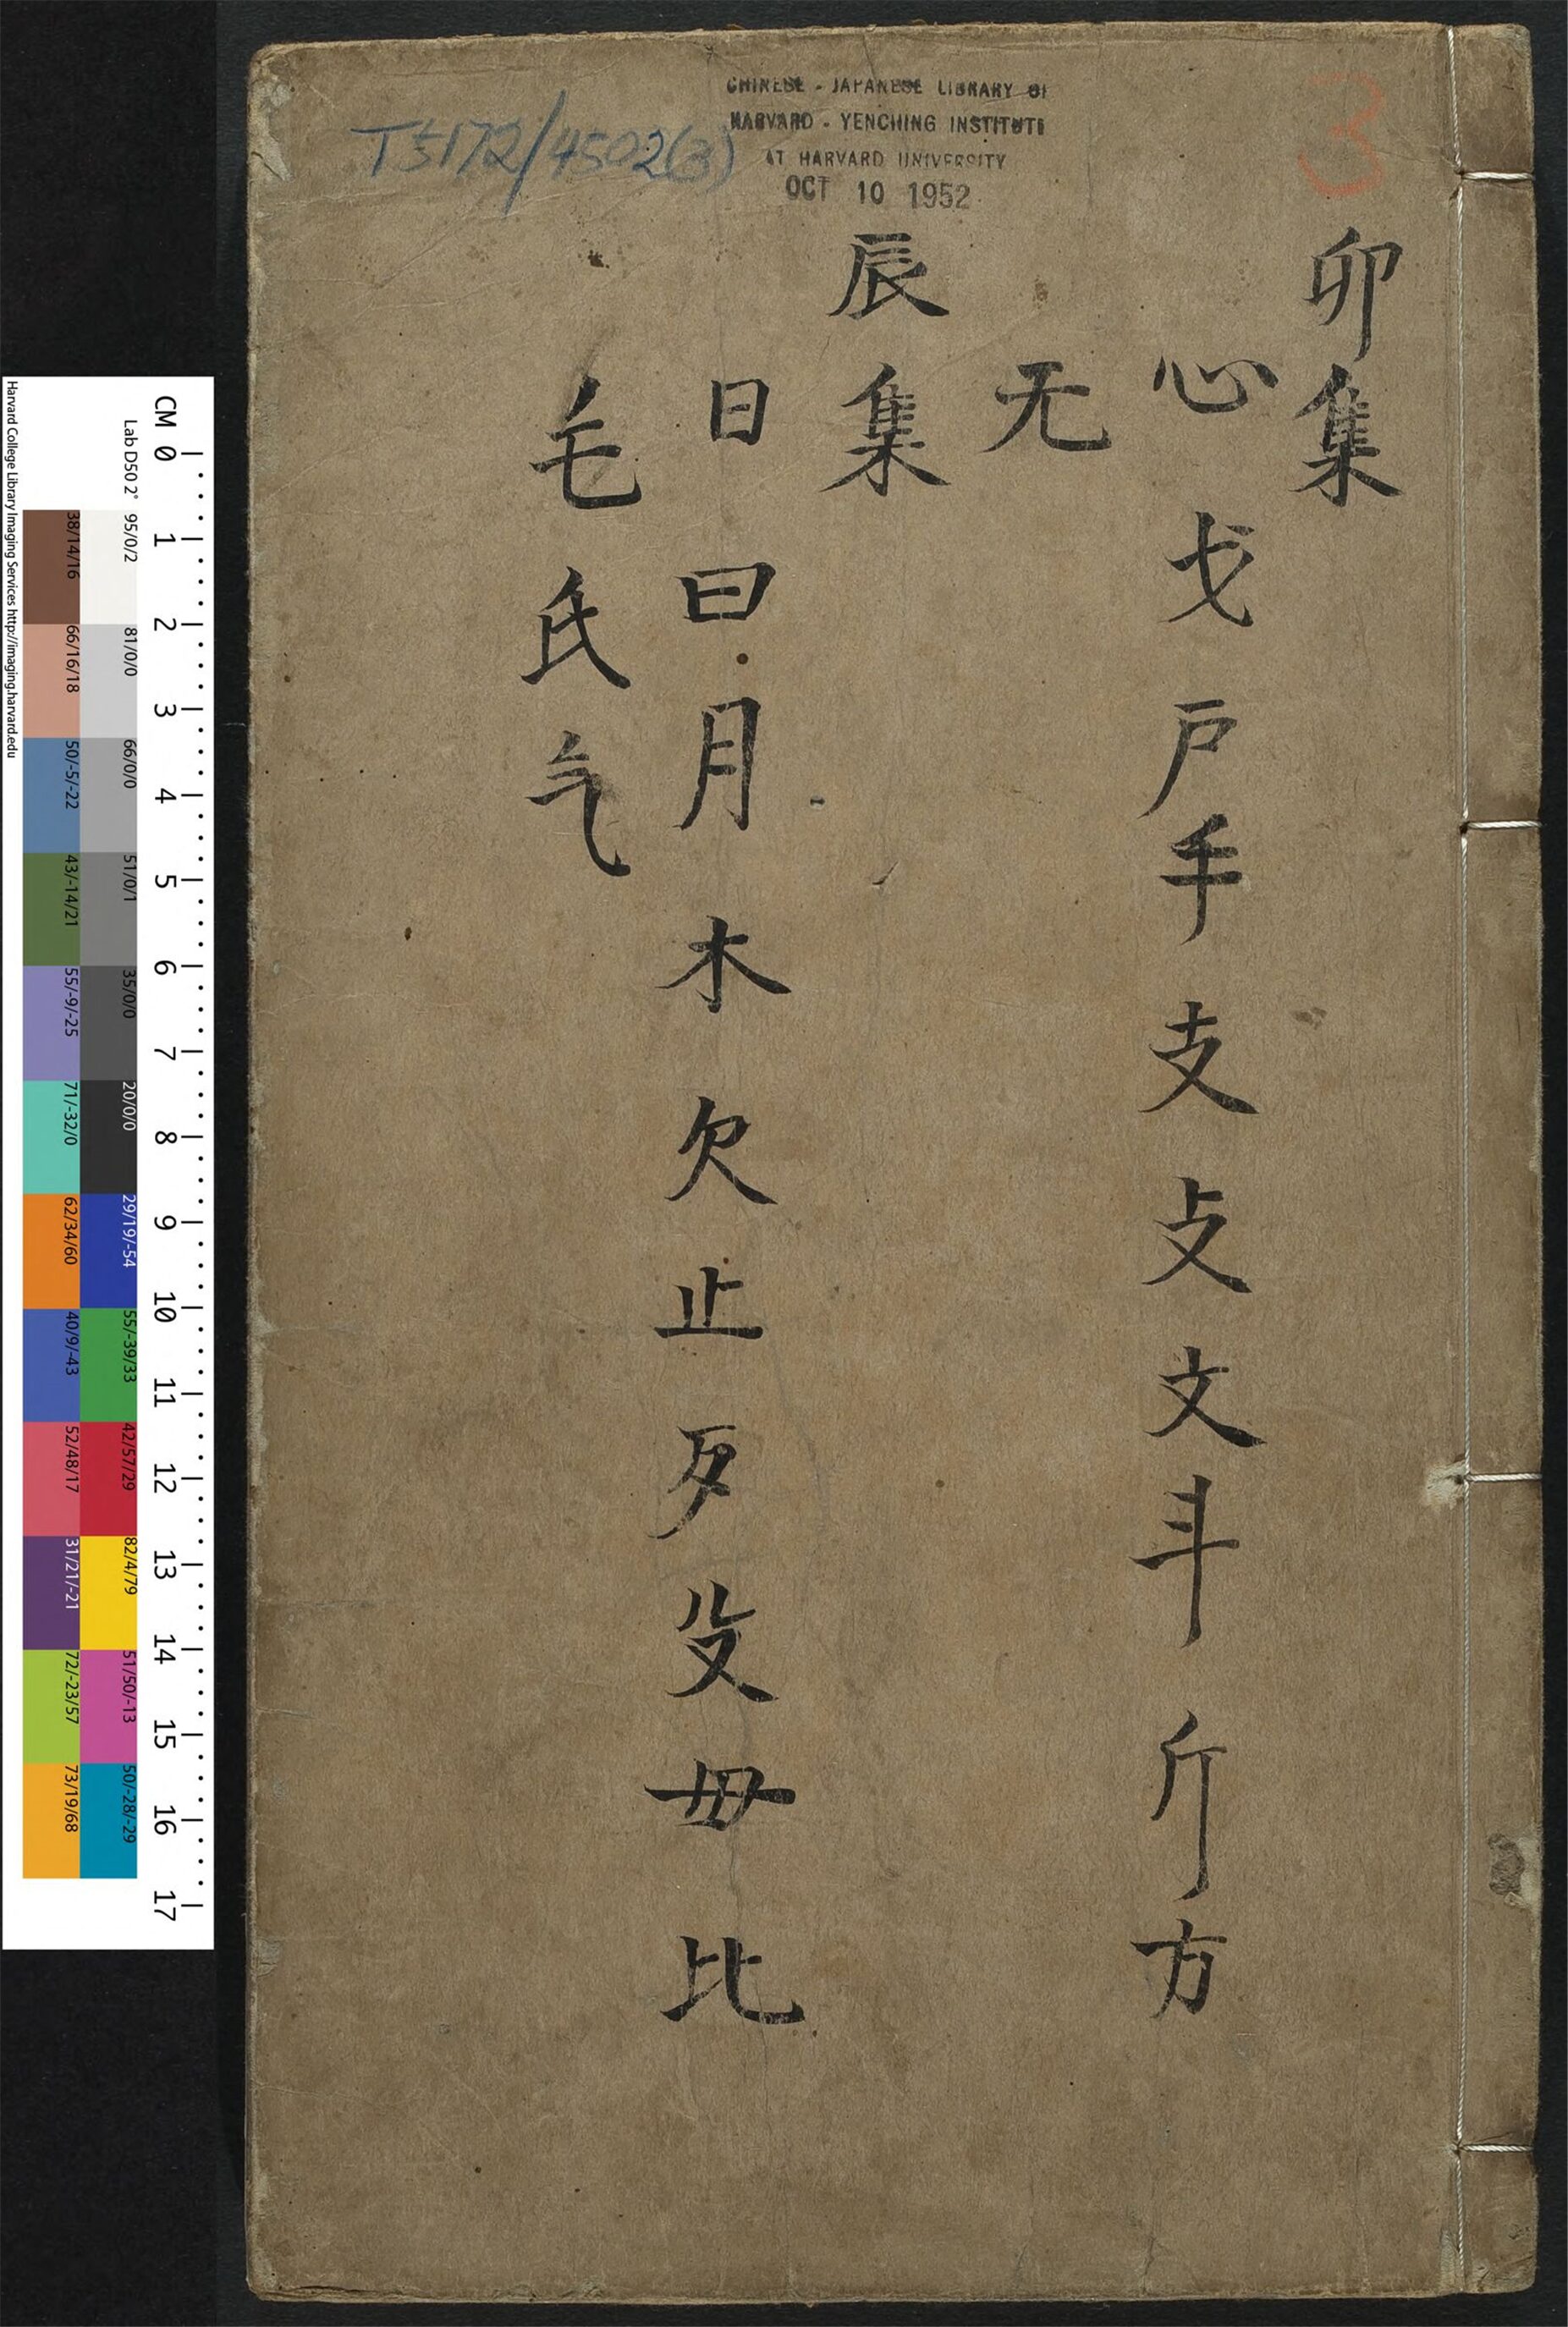 CHINESE - JAPANESE LIBRARY OF
HARVARD - YENCHING INSTITUTE
AT HARVARD UNIVERSITY
OCT 10 1952
3
卯集
心戈戶手支攴文斗斤方
无
辰集
日曰月木欠止歹殳毋比
毛氏气
CM 0 1 2 3 4 5 6 7 8 9 10 11 12 13 14 15 16 17
Lab D50 2° 95/0/2 81/0/0 66/0/0 51/0/1 35/0/0 20/0/0 29/19/-54 55/-39/33 42/57/29 82/4/79 51/50/-13 50/-28/-29
38/14/16 66/16/18 50/-5/-22 43/-14/21 55/-9/-25 71/-32/0 62/34/60 40/9/-43 52/48/17 31/21/-21 72/-23/57 73/19/68
Harvard College Library Imaging Services http://imaging.harvard.edu